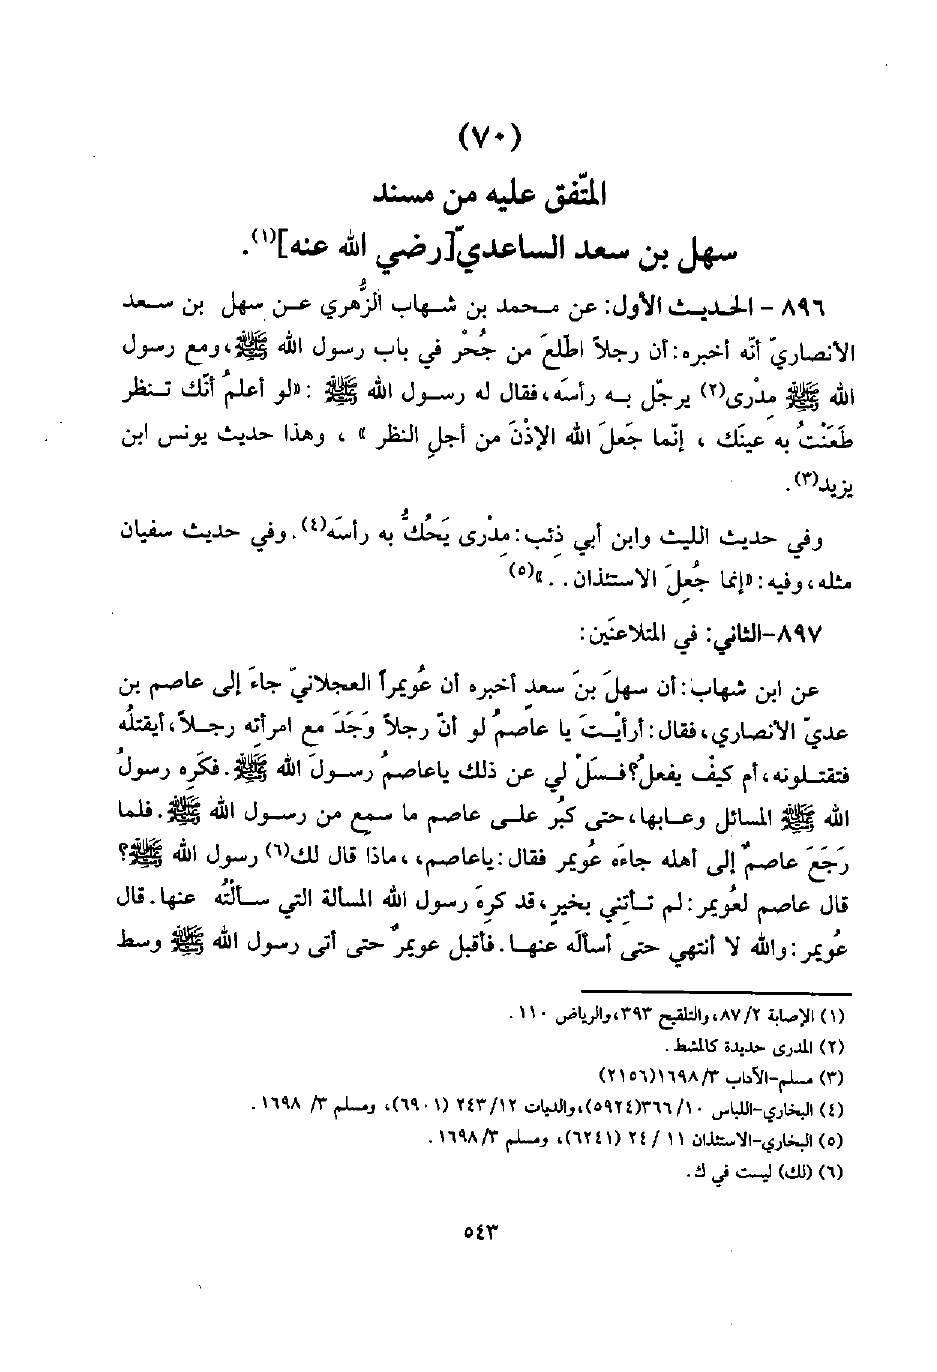 (٧٠)
المتّفق عليه من مسند
سهل بن سعد الساعديّ[رضي الله عنه](١).
٨٩٦ - الحديث الأول: عن محمد بن شهاب الزُّهري عن سهل بن سعد
الأنصاريّ أنّه أخبره: أن رجلاً اطلعَ من جُحْر في باب رسول الله ﷺ، ومع رسول
الله ﷺ مِدْرى(٢) يرجّل به رأسَه، فقال له رسول الله ﷺ : «لو أعلمُ أنّك تنظر
طَعَنْتُ به عينَك ، إنّما جَعلَ الله الإذْنَ من أجلِ النظر » ، وهذا حديث يونس ابن
يزيد(٣).
وفي حديث الليث وابن أبي ذِئب: مِدْرى يَحُكُّ به رأسَه(٤). وفي حديث سفيان
مثله، وفيه: «إنما جُعِلَ الاستئذان. . »(٥)
٨٩٧-الثاني: في المتلاعنَين:
عن ابن شهاب: أن سهلَ بنَ سعدٍ أخبره أن عُويمراً العجلانيّ جاءَ إلى عاصم بن
عديّ الأنصاري، فقال: أرأيْتَ يا عاصمُ لو أنّ رجلاً وَجَدَ مع امرأتِه رجلاً، أيقتلُه
فتقتلونه، أم كيف يفعلُ؟ فسلْ لي عن ذلك ياعاصمُ رسولَ الله ﷺ. فكَرِه رسولُ
الله ﷺ المسائل وعابها، حتى كبُر على عاصم ما سمع من رسول الله ﷺ. فلما
رَجَعَ عاصمٌ إلى أهله جاءَه عُويمر فقال: ياعاصم،، ماذا قال لك(٦) رسول الله ﷺ؟
قال عاصم لعُويمر: لم تأتني بخيرٍ، قد كرِهَ رسول الله المسألة التي سألْتُه عنها. قال
عُويمر: والله لا أنتهي حتى أسألَه عنها. فأقبل عويمرٌ حتى أتى رسول الله ﷺ وسط
(١) الإصابة ٢/ ٨٧، والتلقيح ٣٩٣، والرياض ١١٠ .
(٢) المدرى حديدة كالمشط.
(٣) مسلم-الآداب ٣/ ١٦٩٨(٢١٥٦)
(٤) البخاري-اللباس ١٠/ ٣٦٦(٥٩٢٤)، والديات ١٢/ ٢٤٣ (٦٩٠١)، ومسلم ٣/ ١٦٩٨ .
(٥) البخاري-الاستئذان ١١ / ٢٤ (٦٢٤١)، ومسلم ٣/ ١٦٩٨ .
(٦) (لك) ليست في ك.
٥٤٣